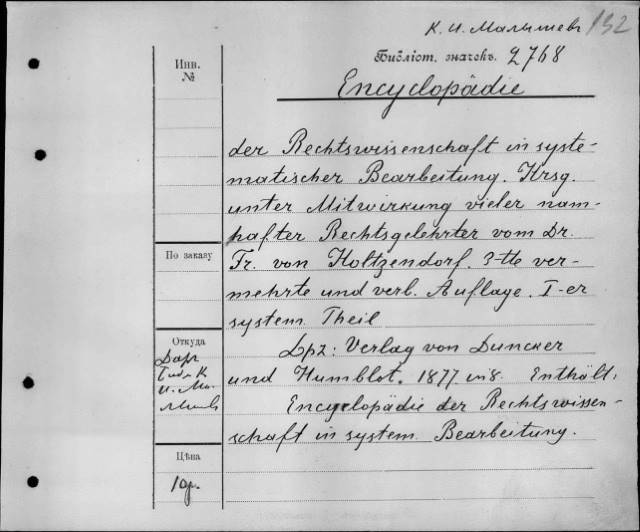 К. И. Малышевъ 132
Инв.
№
Библіот. значекъ. 2768
Encyclopädie
der Rechtswissenschaft in syste-
matischer Bearbeitung. Hrsg.
unter Mitwirkung vieler nam-
hafter Rechtsgelehrter vom Dr.
По заказу
Fr. von Holtzendorf. 3-tte ver-
mehrte und verb. Auflage. I-er
system. Theil
Откуда
Даръ
К
И. Ма
Lpz: Verlag von Duncker
und Humblot. 1877. in 8. Enthält:
Encyclopädie der Rechtswissen-
schaft in system. Bearbeitung.
Цѣна
10р.